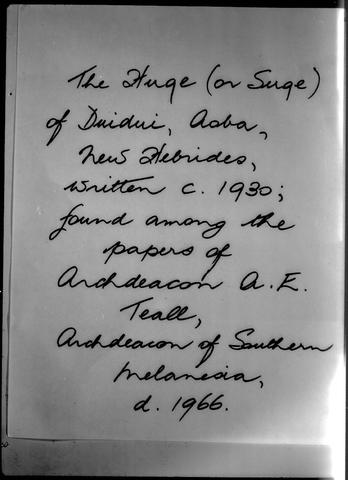 The Huge (or Suge)
of Duidui, Aoba,
New Hebrides,
written c. 1930;
found among the
papers of
Archdeacon A.E.
Teall,
Archdeacon of Southern
Melanesia,
d. 1966.